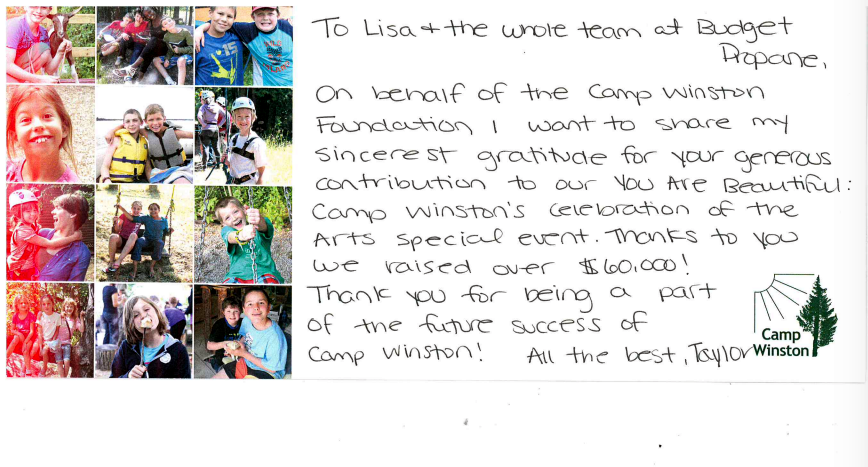 To Lisa + the whole team at Budget
Propane,
On behalf of the Camp Winston
Foundation I want to share my
sincerest gratitude for your generous
contribution to our You Are Beautiful:
Camp Winston's Celebration of the
Arts special event. Thanks to you
we raised over $60,000!
Thank you for being a part
of the future success of
Camp Winston! All the best, Taylor
Camp
Winston